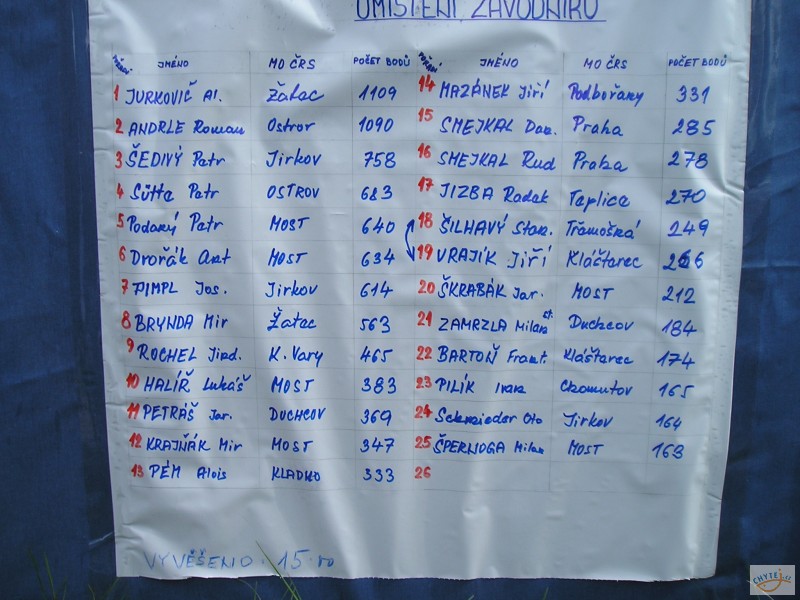 UMÍSTĚNÍ ZÁVODNÍKŮ
POŘADÍ JMÉNO MO ČRS POČET BODŮ
1 JURKOVIČ Al. Žatec 1109
2 ANDRLE Roman Ostrov 1090
3 ŠEDIVÝ Petr Jirkov 758
4 Sůtta Petr OSTROV 683
5 Podaný Petr MOST 640
6 Dvořák Ant Most 634
7 PIMPL Jos. Jirkov 614
8 BRYNDA Mir Žatec 563
9 ROCHEL Jind. K. Vary 465
10 HALÍŘ Lukáš MOST 383
11 PETRÁŠ Jar. DUCHCOV 369
12 KRAJŇÁK Mir MOST 347
13 PÉM Alois KLADNO 333
POŘADÍ JMÉNO MO ČRS POČET BODŮ
14 MAZÁNEK Jiří Podbořany 331
15 SMEJKAL Dan. Praha 285
16 SMEJKAL Rud Praha 278
17 JIZBA Radek Teplice 270
18 ŠILHAVÝ Stan. Třemošná 249
19 VRAJÍK Jiří Klášterec 266
20 ŠKRABÁK Jar. MOST 212
21 ZAMRZLA Milan st. Duchcov 184
22 BARTOŇ Frant Klášterec 174
23 PILÍK Ivan Chomutov 165
24 Schneider Oto Jirkov 164
25 ŠPERLIOGA Milan MOST 163
26
VYVĚŠENO. 15.00
CHYTEJ.cz